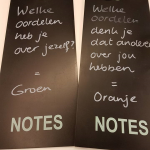 Welke
oordelen
heb je
over jezelf?
=
Groen
NOTES
Welke
oordelen
denk je
dat anderen
over jou
hebben
=
Oranje
NOTES